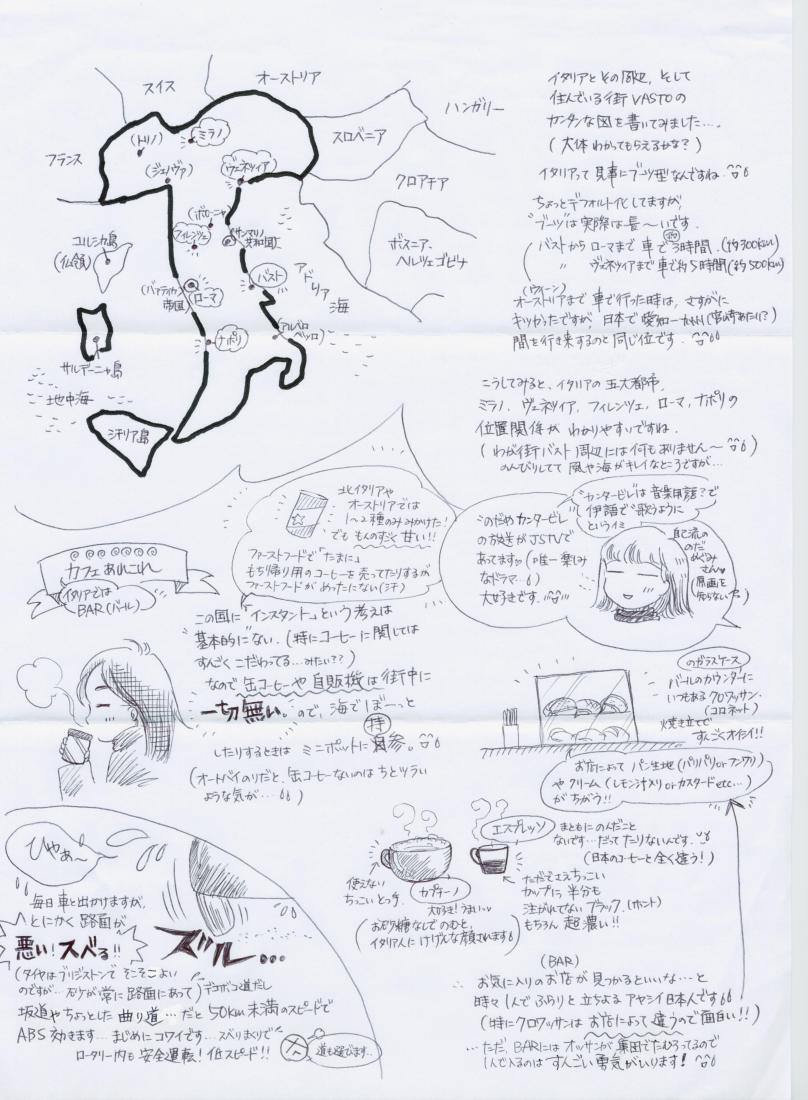 スイス
オーストリア
ハンガリー
スロベニア
フランス
クロアチア
ボスニア、
ヘルツェゴビナ
(トリノ)
ミラノ
(ジェノヴァ)
(ヴェネツィア)
(ボローニャ)
フィレンツェ
(サンマリノ
共和国)
コルシカ島
(仏領)
バスト
アドリア
海
(バァティカン
帝国)
ローマ
ナポリ
(アルベロ
ベッロ)
サルデーニャ島
地中海
シチリア島
イタリアとその周辺、そして
住んでいる街VASTOの
カンタンな図を書いてみました…。
(大体わかってもらえるかな?)
イタリアって見事にブーツ型なんですね。
ちょっとデフォルト化してますが、
"ブーツ"は実際は長〜いです。
バストからローマまで車で3時間。(約300km)
〃 ヴェネツィアまで車で約5時間(約500km)
(ウィーン)
オーストリアまで車で行った時は、さすがに
キツかったですが、日本で愛知―九州(宮崎あたり?)
間を行き来するのと同じ位です。
こうしてみると、イタリアの五大都市、
ミラノ、ヴェネツィア、フィレンツェ、ローマ、ナポリの
位置関係がわかりやすいですね。
(わが街バスト周辺には何もありません〜
のんびりしてて風や海がキレイなところですが…
北イタリアや
オーストリアでは
1〜2種のみみかけた!
でもものすごく甘い!!
ファーストフードで「たまに」
もち帰り用のコーヒーを売ってたりするが
ファーストフードがあったにない(ミナ)
"カンタービレ"は音楽用語?で
伊語で"歌うように"
というイミ
"のだめカンタービレ"
の放送がJSTVで
あってますッ(唯一楽しみ
なドラマ)
大好きです。
自己流の
のだ
めぐみ
さん
原画を
知らない
カフェあれこれ
イタリアでは
BAR(バール)
この国に「インスタント」という考えは
基本的にない。(特にコーヒーに関しては
すんごくこだわってる…みたい??)
なので缶コーヒーや自販機は街中に
一切無い。ので、海でぼーっと
したりするときはミニポットに持参。
(オートバイのりだと、缶コーヒーないのはちとツライ
ような気が…)
のガラスケース
バールのカウンターに
いつもあるクロワッサン。
(コロネット)
焼き立てで
すんごくオイシイ!!
お店によってパン生地(パリパリorフンワリ)
やクリーム(レモン汁入りorカスタードetc…)
がちがう!!
エスプレッソ
まともにのんだこと
ないです…だってたりないんです。
(日本のコーヒーと全く違う!)
使えない
ちっこいとって。
カプチーノ
大好き!うまい
(お砂糖なしでのむと、
イタリア人にけげんな顔されます)
ただでさえちっこい
カップに半分も
注がれてないブラック。(ホント)
もちろん超濃い!!
ひゃぁ〜
毎日車と出かけますが、
とにかく路面が
悪い!スベる!!
ズルッ…
(タイヤはブリジストンでそこそこよい
のですが…砂が常に路面にあって)デコボコ道だし
坂道やちょっとした曲り道…だと50km未満のスピードで
ABS効きます…まじめにコワイです…スベりまくりで
ロータリー内も安全運転!低スピード!!
道も選びます…
(BAR)
お気に入りのお店が見つかるといいな…と
時々1人でふらりと立ちよるアヤシイ日本人です
(特にクロワッサンはお店によって違うので面白い!!)
…ただ、BARにはオッサンが集団でたむろってるので
1人で入るのはすんごい勇気がいります!